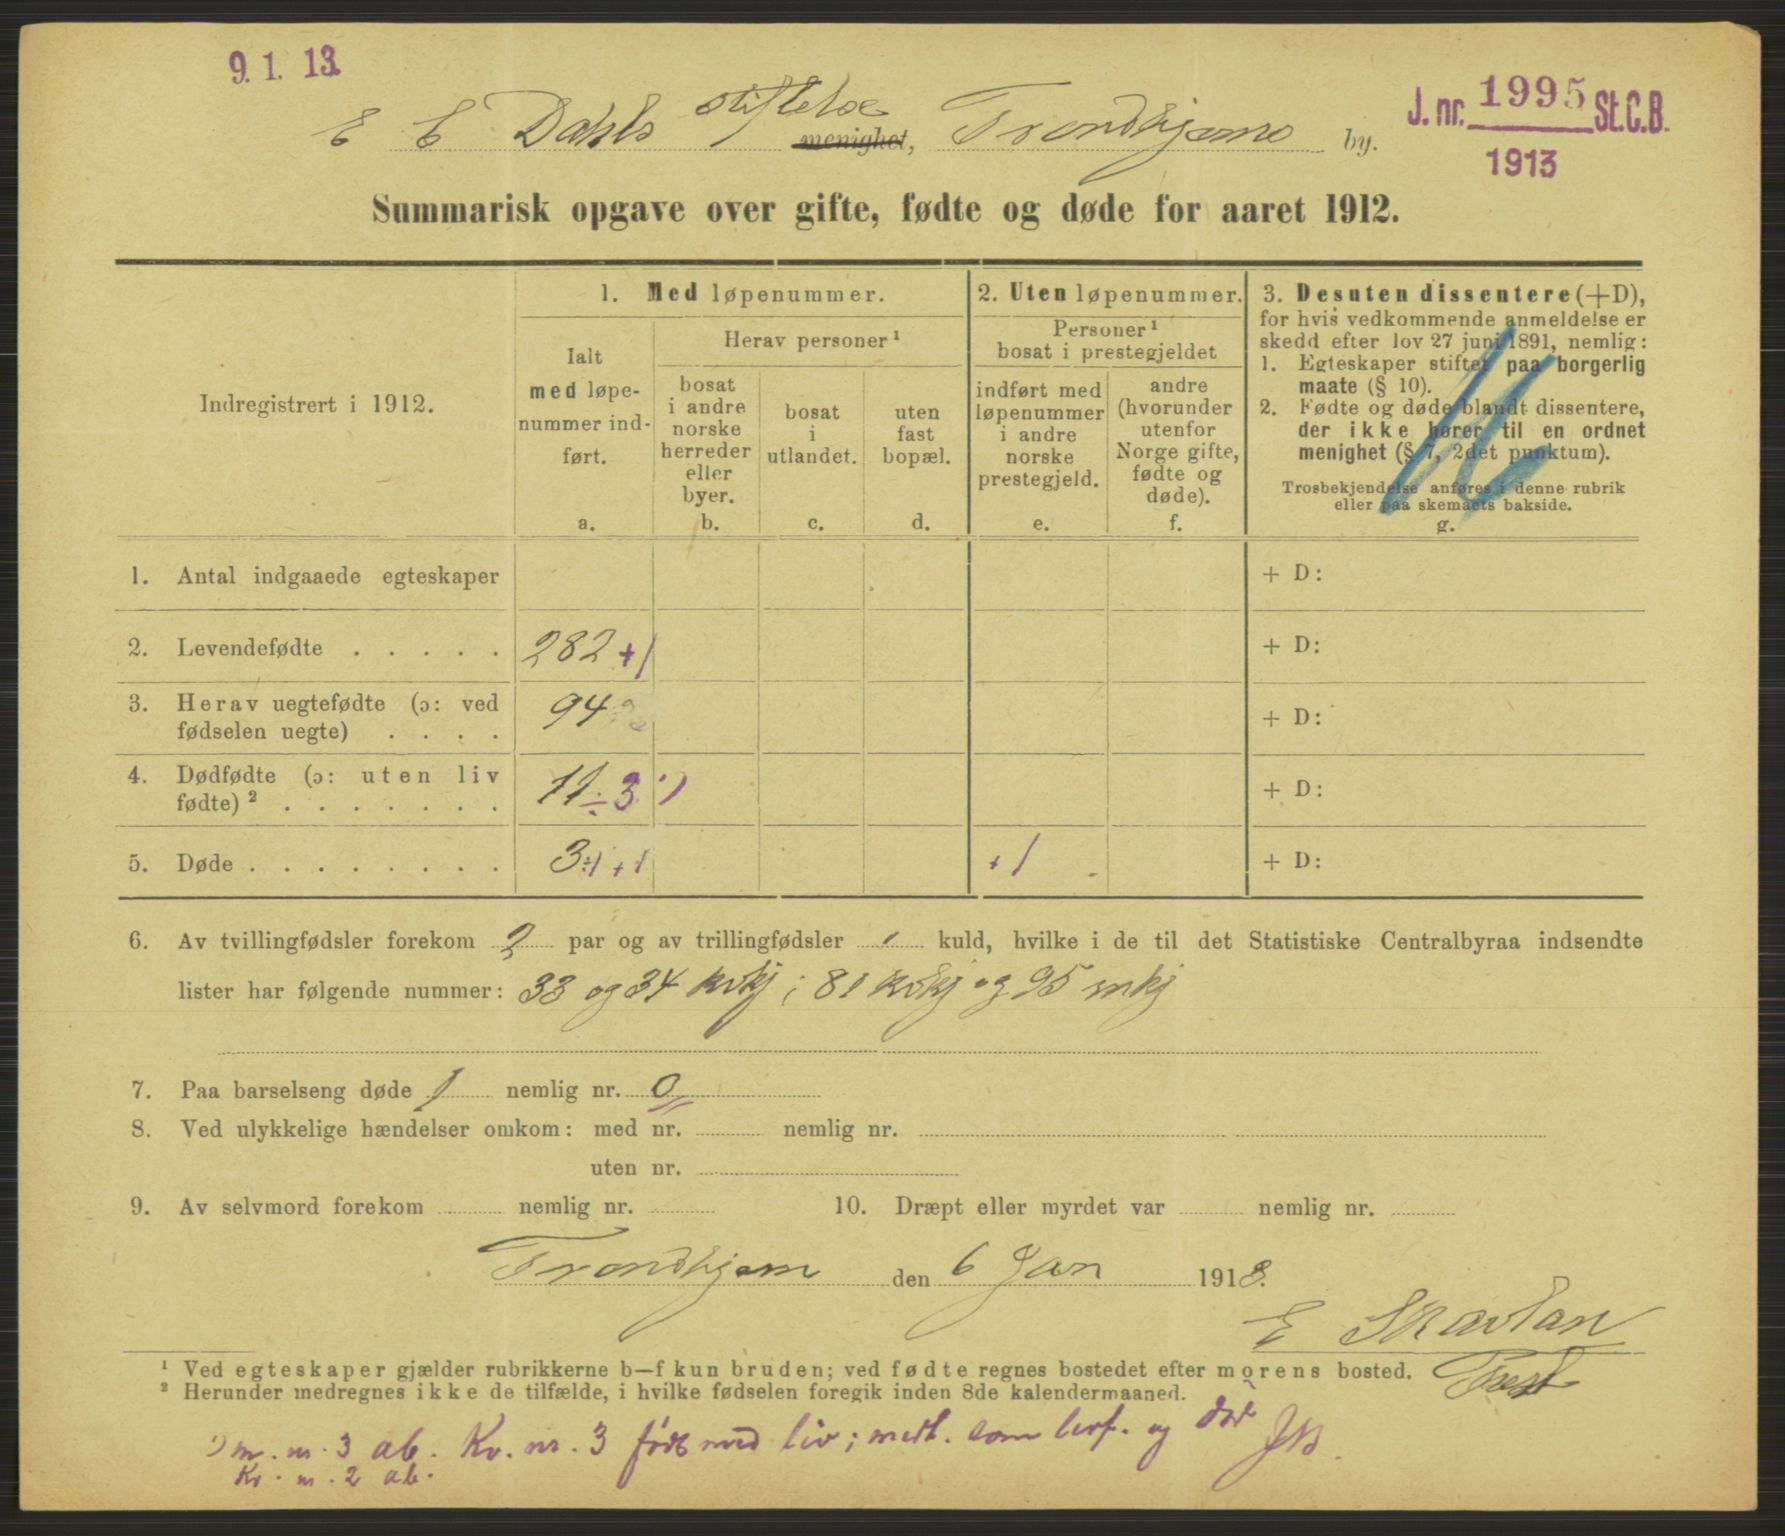 9. 1. 13.
J. nr. 1995 St.C.B.
1913
E C Dahls stiftelse menighet, Trondhjems by.
Summarisk opgave over gifte, fødte og døde for aaret 1912.
Indregistrert i 1912.
1. Med løpenummer.
Ialt
med løpe-
nummer ind-
ført.
a.
Herav personer ¹
bosat
i andre
norske
herreder
eller
byer.
b.
bosat
i
utlandet.
c.
uten
fast
bopæl.
d.
2. Uten løpenummer.
Personer ¹
bosat i prestegjeldet
indført med
løpenummer
i andre
norske
prestegjeld.
e.
andre
(hvorunder
utenfor
Norge gifte,
fødte og
døde).
f.
3. Desuten dissentere (+D),
for hvis vedkommende anmeldelse er
skedd efter lov 27 juni 1891, nemlig:
1. Egteskaper stiftet paa borgerlig
maate (§ 10).
2. Fødte og døde blandt dissentere,
der ikke hører til en ordnet
menighet (§ 7, 2det punktum).
Trosbekjendelse anføres i denne rubrik
eller paa skemaets bakside.
g.
1. Antal indgaaede egteskaper + D:
2. Levendefødte . . . . . 282 +1 + D:
3. Herav uegtefødte (ɔ: ved
fødselen uegte) . . . . 94 + D:
4. Dødfødte (ɔ: uten liv
fødte) ² . . . . . . . 11 ÷ 3 ¹) + D:
5. Døde . . . . . . . . 3 ÷1 +1 +1 + D:
6. Av tvillingfødsler forekom 2 par og av trillingfødsler kuld, hvilke i de til det Statistiske Centralbyraa indsendte
lister har følgende nummer: 33 og 34 kvkj ; 81 kvkj og 95 mkj
7. Paa barselseng døde 1 nemlig nr. 0
8. Ved ulykkelige hændelser omkom: med nr. nemlig nr.
uten nr.
9. Av selvmord forekom nemlig nr. 10. Dræpt eller myrdet var nemlig nr.
Trondhjem den 6 Jan 1913.
E Skavlan
Prest
¹ Ved egteskaper gjælder rubrikkerne b—f kun bruden; ved fødte regnes bostedet efter morens bosted.
² Herunder medregnes ikke de tilfælde, i hvilke fødselen foregik inden 8de kalendermaaned.
¹) m. nr. 3 ab. Kv. nr. 3 født med liv; medt. som levf. og død
Kv. nr. 2 ab.